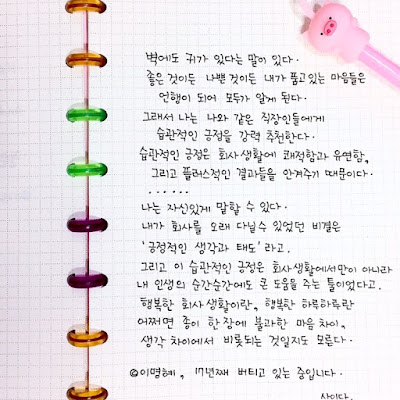 벽에도 귀가 있다는 말이 있다.
좋은것이든 나쁜것이든 내가 품고있는 마음들은
언행이 되어 모두가 알게 된다.
그래서 나는 나와 같은 직장인들에게
습관적인 긍정을 강력 추천한다.
습관적인 긍정은 회사생활에 쾌적함과 유연함,
그리고 플러스적인 결과들을 안겨주기 때문이다.
......
나는 자신있게 말할 수 있다.
내가 회사를 오래 다닐수 있었던 비결은
'긍정적인 생각과 태도' 라고.
그리고 이 습관적인 긍정은 회사생활에서만이 아니라
내 인생의 순간순간에도 큰 도움을 주는 툴이었다고.
행복한 회사생활이란, 행복한 하루하루란
어쩌면 종이 한장에 불과한 마음 차이,
생각 차이에서 비롯되는 것일지도 모른다.
©이명혜, 17년째 버티고 있는 중입니다.
사이다.